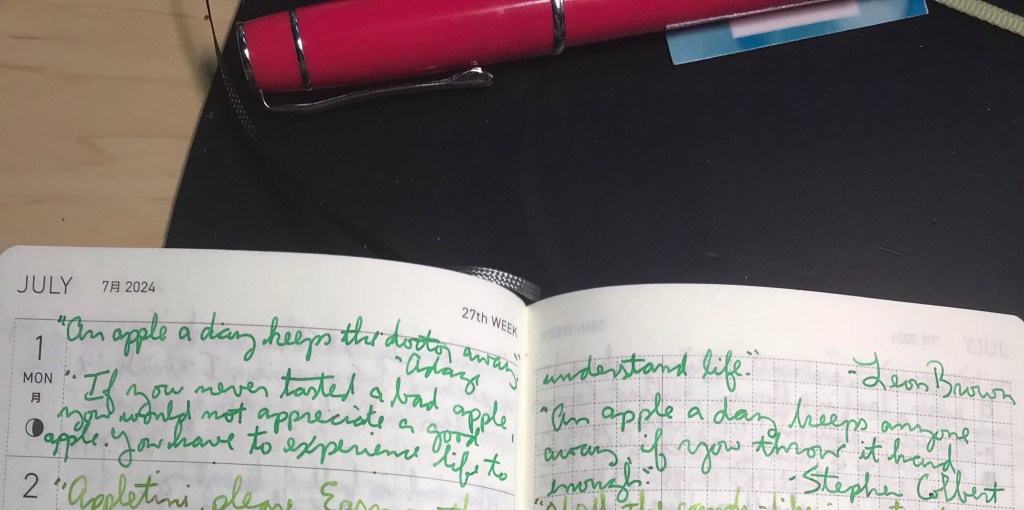 JULY 7月 2024
27th WEEK
1
MON
月
"An apple a day keeps the doctor away"
- Adage
"If you never tasted a bad apple,
you would not appreciate a good
apple. You have to experience life to
2
"Appletini, please. Easy on the
understand life." - Leon Brown
"An apple a day keeps anyone
away, if you throw it hard
enough." - Stephen Colbert
the candy